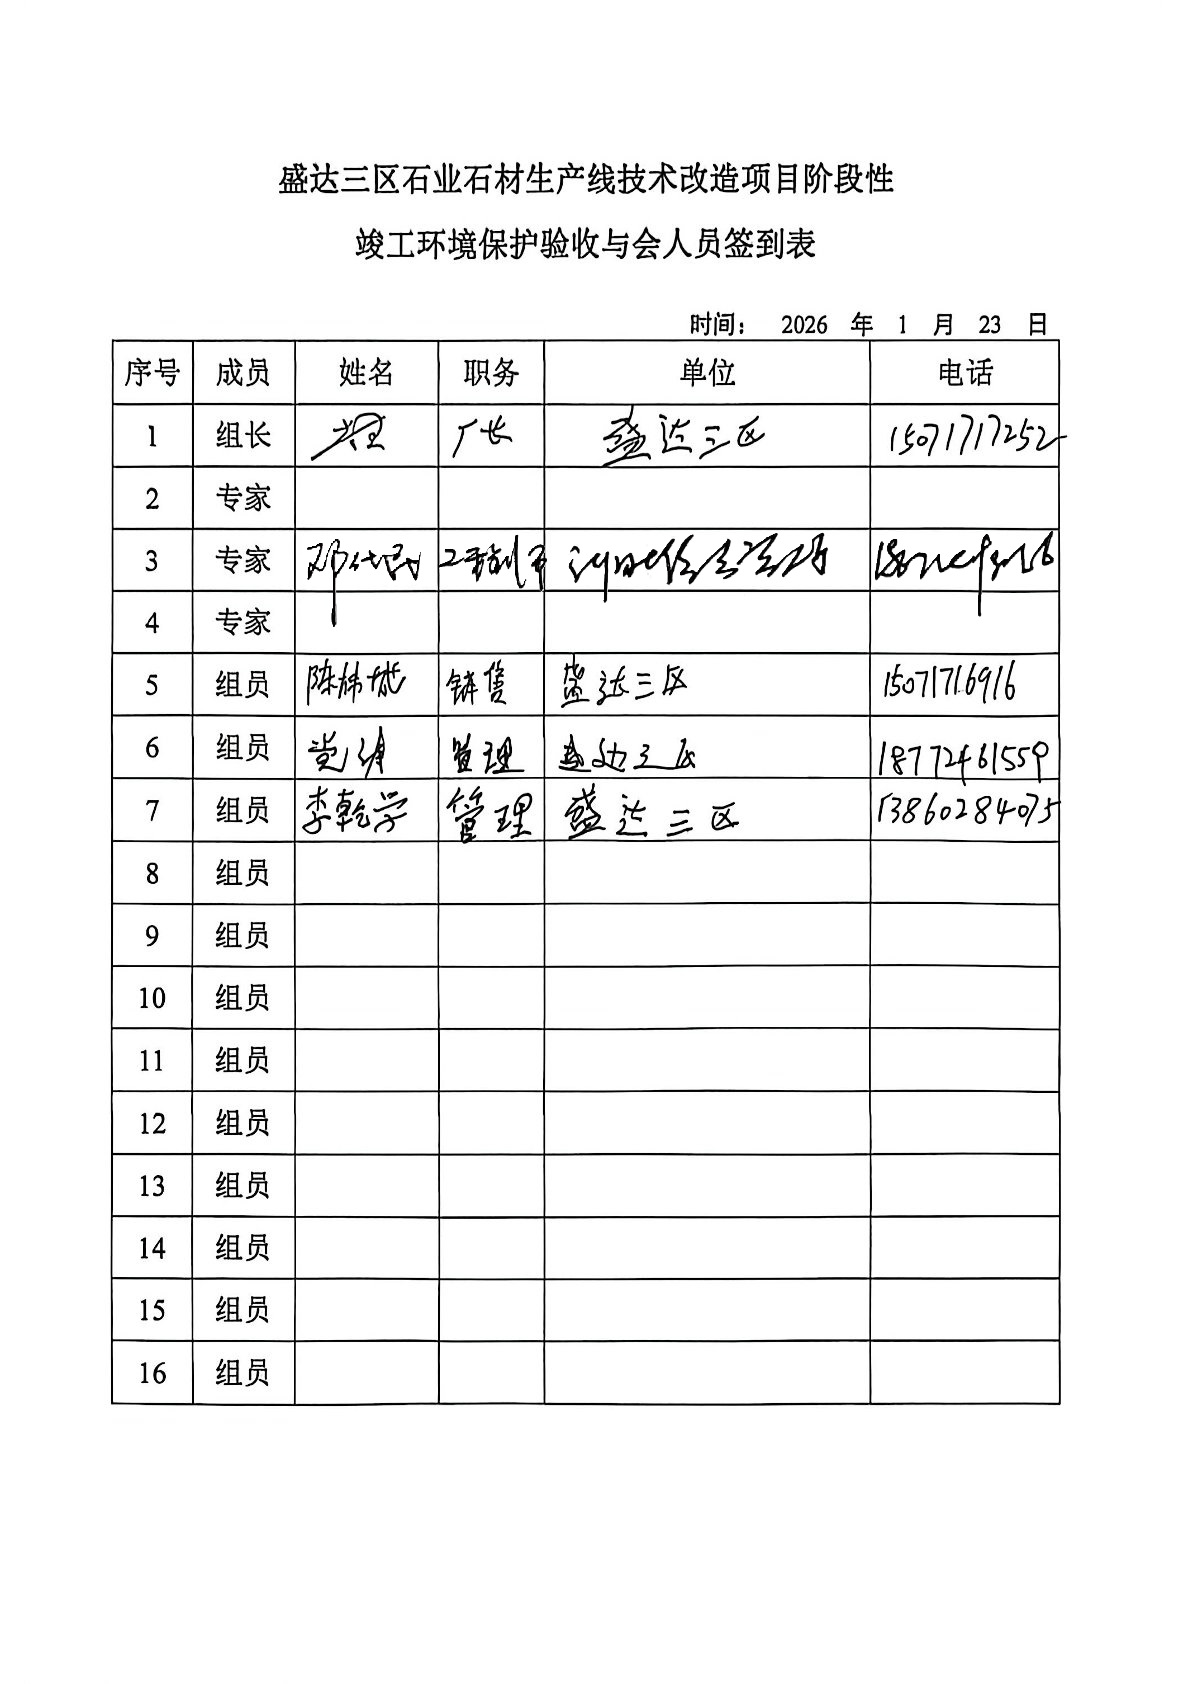 盛达三区石业石材生产线技术改造项目阶段性
竣工环境保护验收与会人员签到表
时间： 2026 年 1 月 23 日
序号 成员 姓名 职务 单位 电话
1 组长 厂长 盛达三区 15071717252
2 专家
3 专家 邓
4 专家
5 组员 陈 销售 盛达三区 15071716916
6 组员 党 管理 盛达三区 18772461559
7 组员 李乾学 管理 盛达三区 13860284075
8 组员
9 组员
10 组员
11 组员
12 组员
13 组员
14 组员
15 组员
16 组员